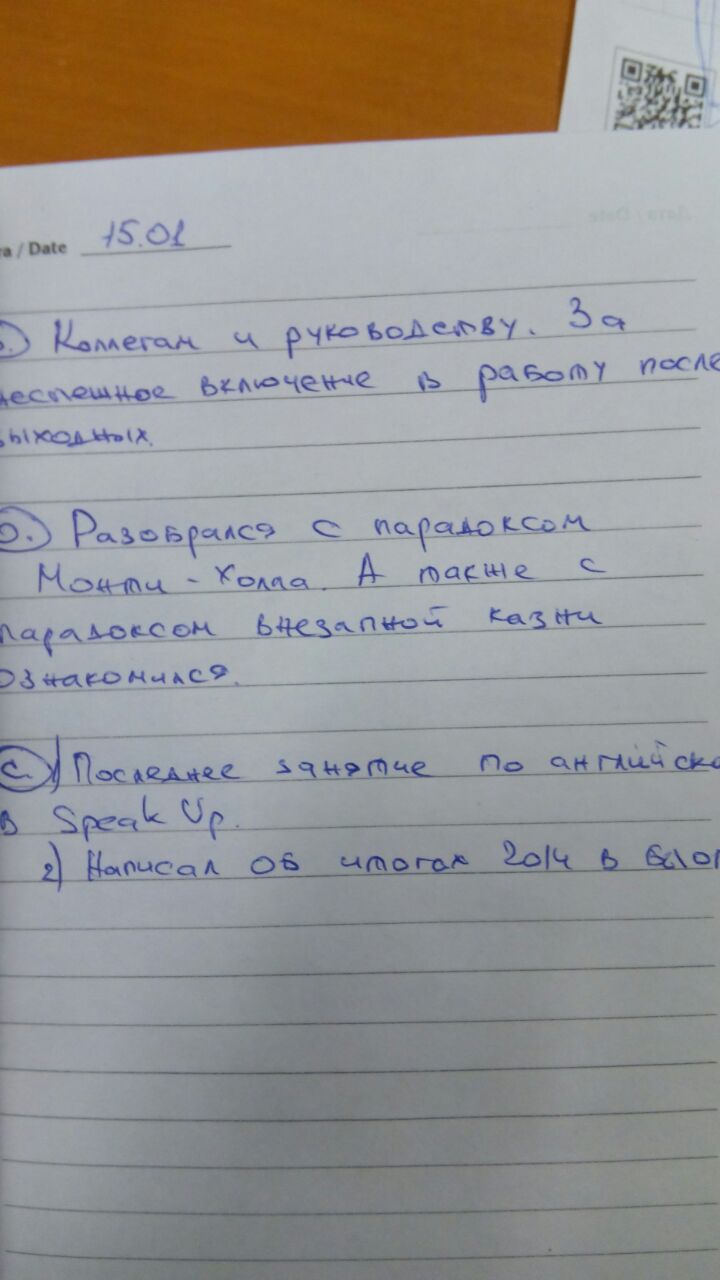 / Date 15.01
Коллегам и руководству. За
неспешное включение в работу после
выходных.
Разобрался с парадоксом
Монти-Холла. А также с
парадоксом внезапной казни
ознакомился.
с. 1) Последнее занятие по английско
в Speak Up.
2) Написал об итогах 2014 в блог